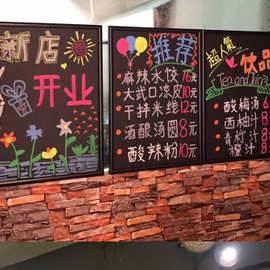 新店
开业
推荐
麻辣水饺 16元
大武口凉皮 10元
干拌米线 12元
酒酿汤圆 8元
酸辣粉 10元
超人氣
饮品
Tea and juice
酸梅汤 8
西柚汁 8
青柠汁
橙汁